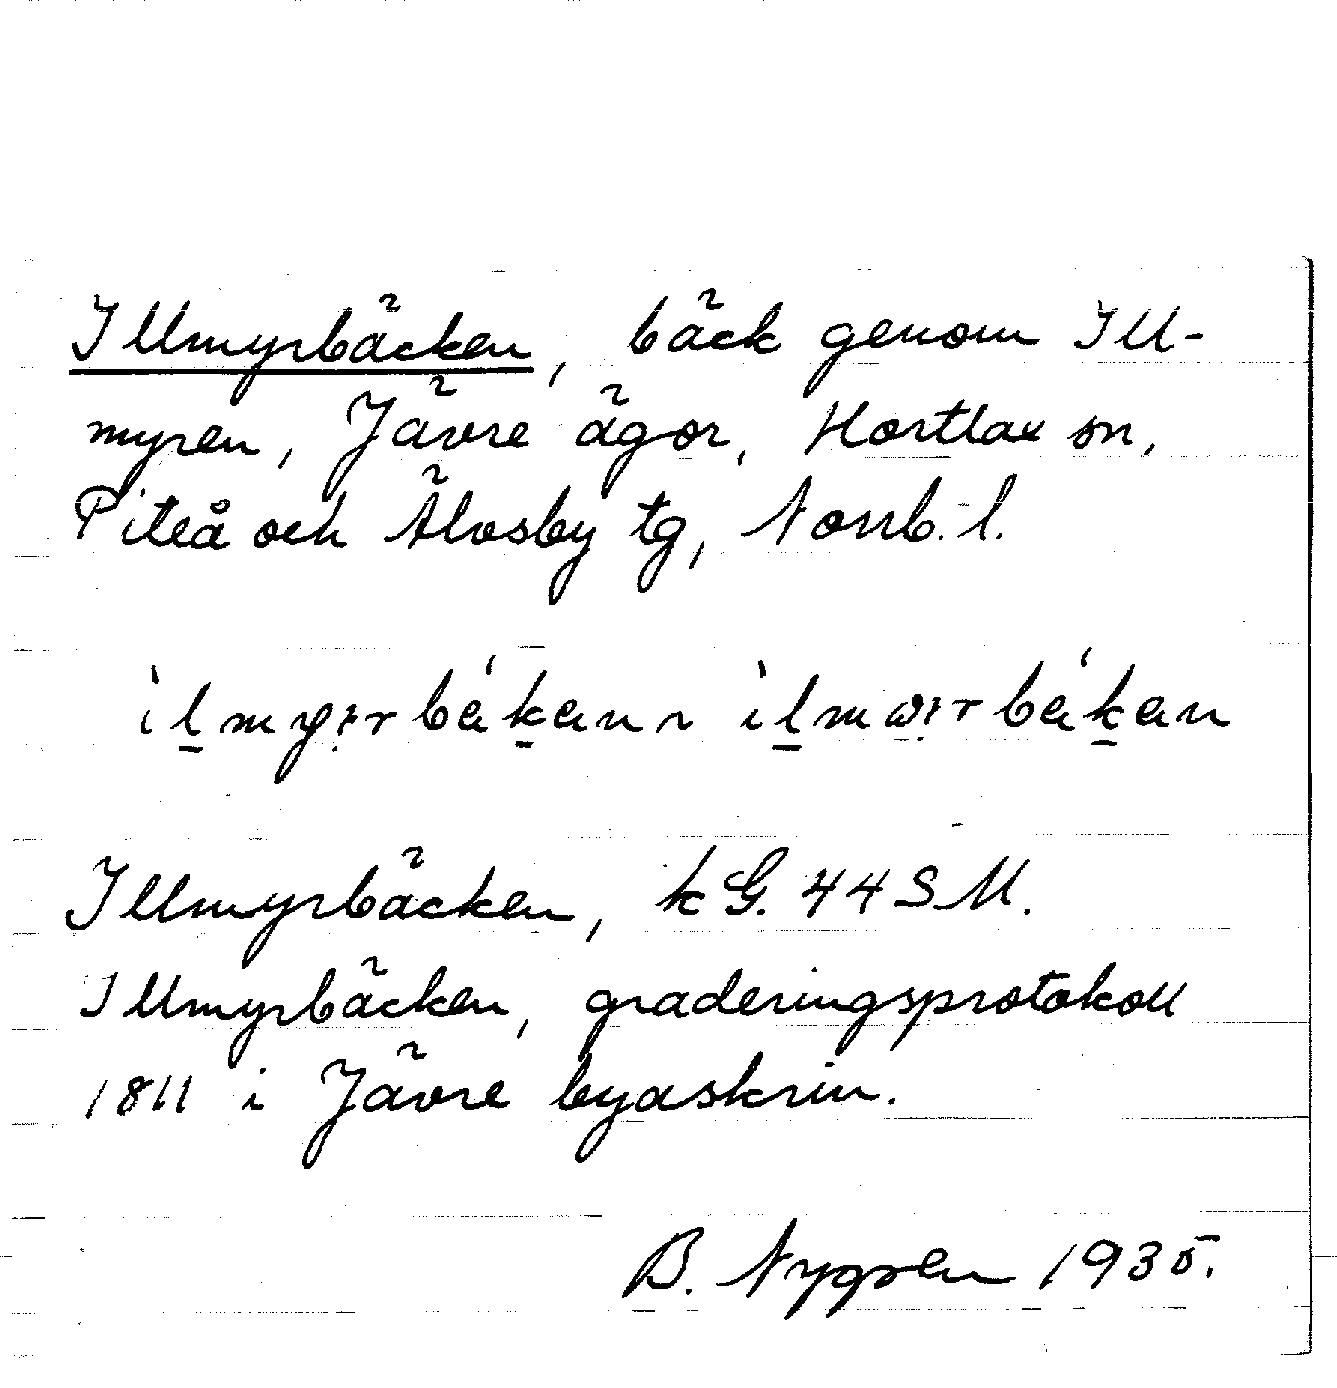 Illmyrbäcken, bäck genom Ill-
myren, Jävre ägor, Hortlax sn,
Piteå och Älvsby tg, Norrb. l.
Illmyrbäcken, kG. 44 SM.
Illmyrbäcken, graderingsprotokoll
1811 i Jävre byaskrin.
B. Nygren 1935.